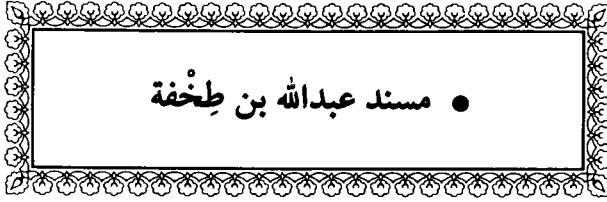 ● مسند عبدالله بن طِخْفة